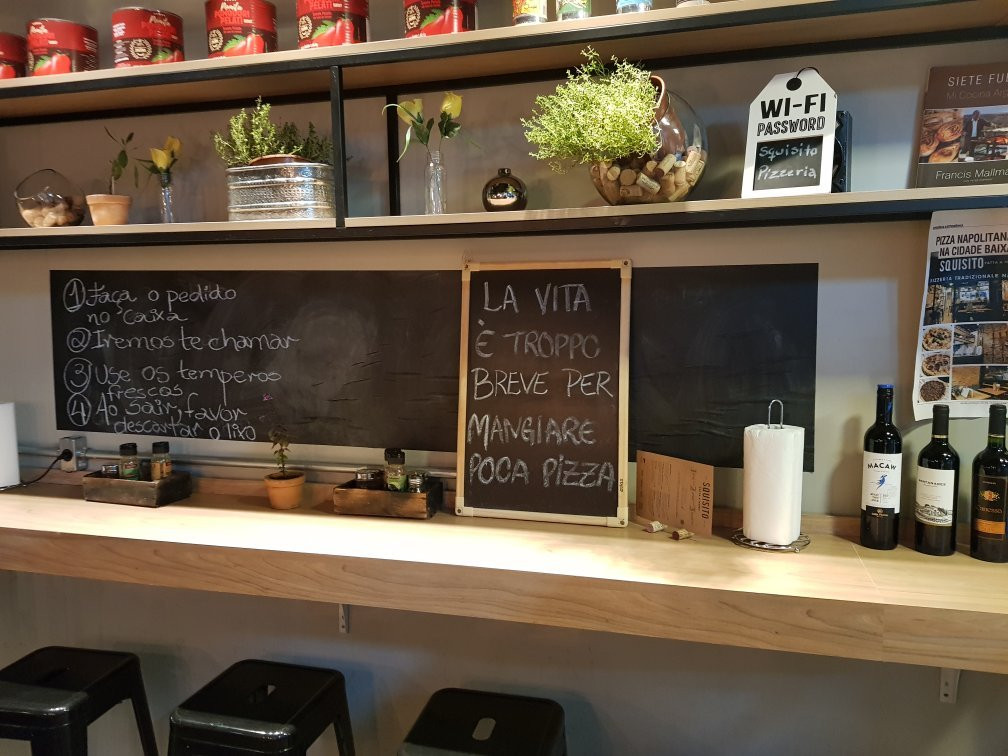 WI-FI
PASSWORD
Squisito
Pizzeria
SIETE
Francis
PIZZA NAPOLITANA
NA CIDADE BAIXA
SQUISITO
① Faça o pedido
no caixa
② Iremos te chamar
③ Use os temperos
frescos
④ Ao sair, favor
descartar o lixo
LA VITA
È TROPPO
BREVE PER
MANGIARE
POCA PIZZA
SQUISITO
MACAW